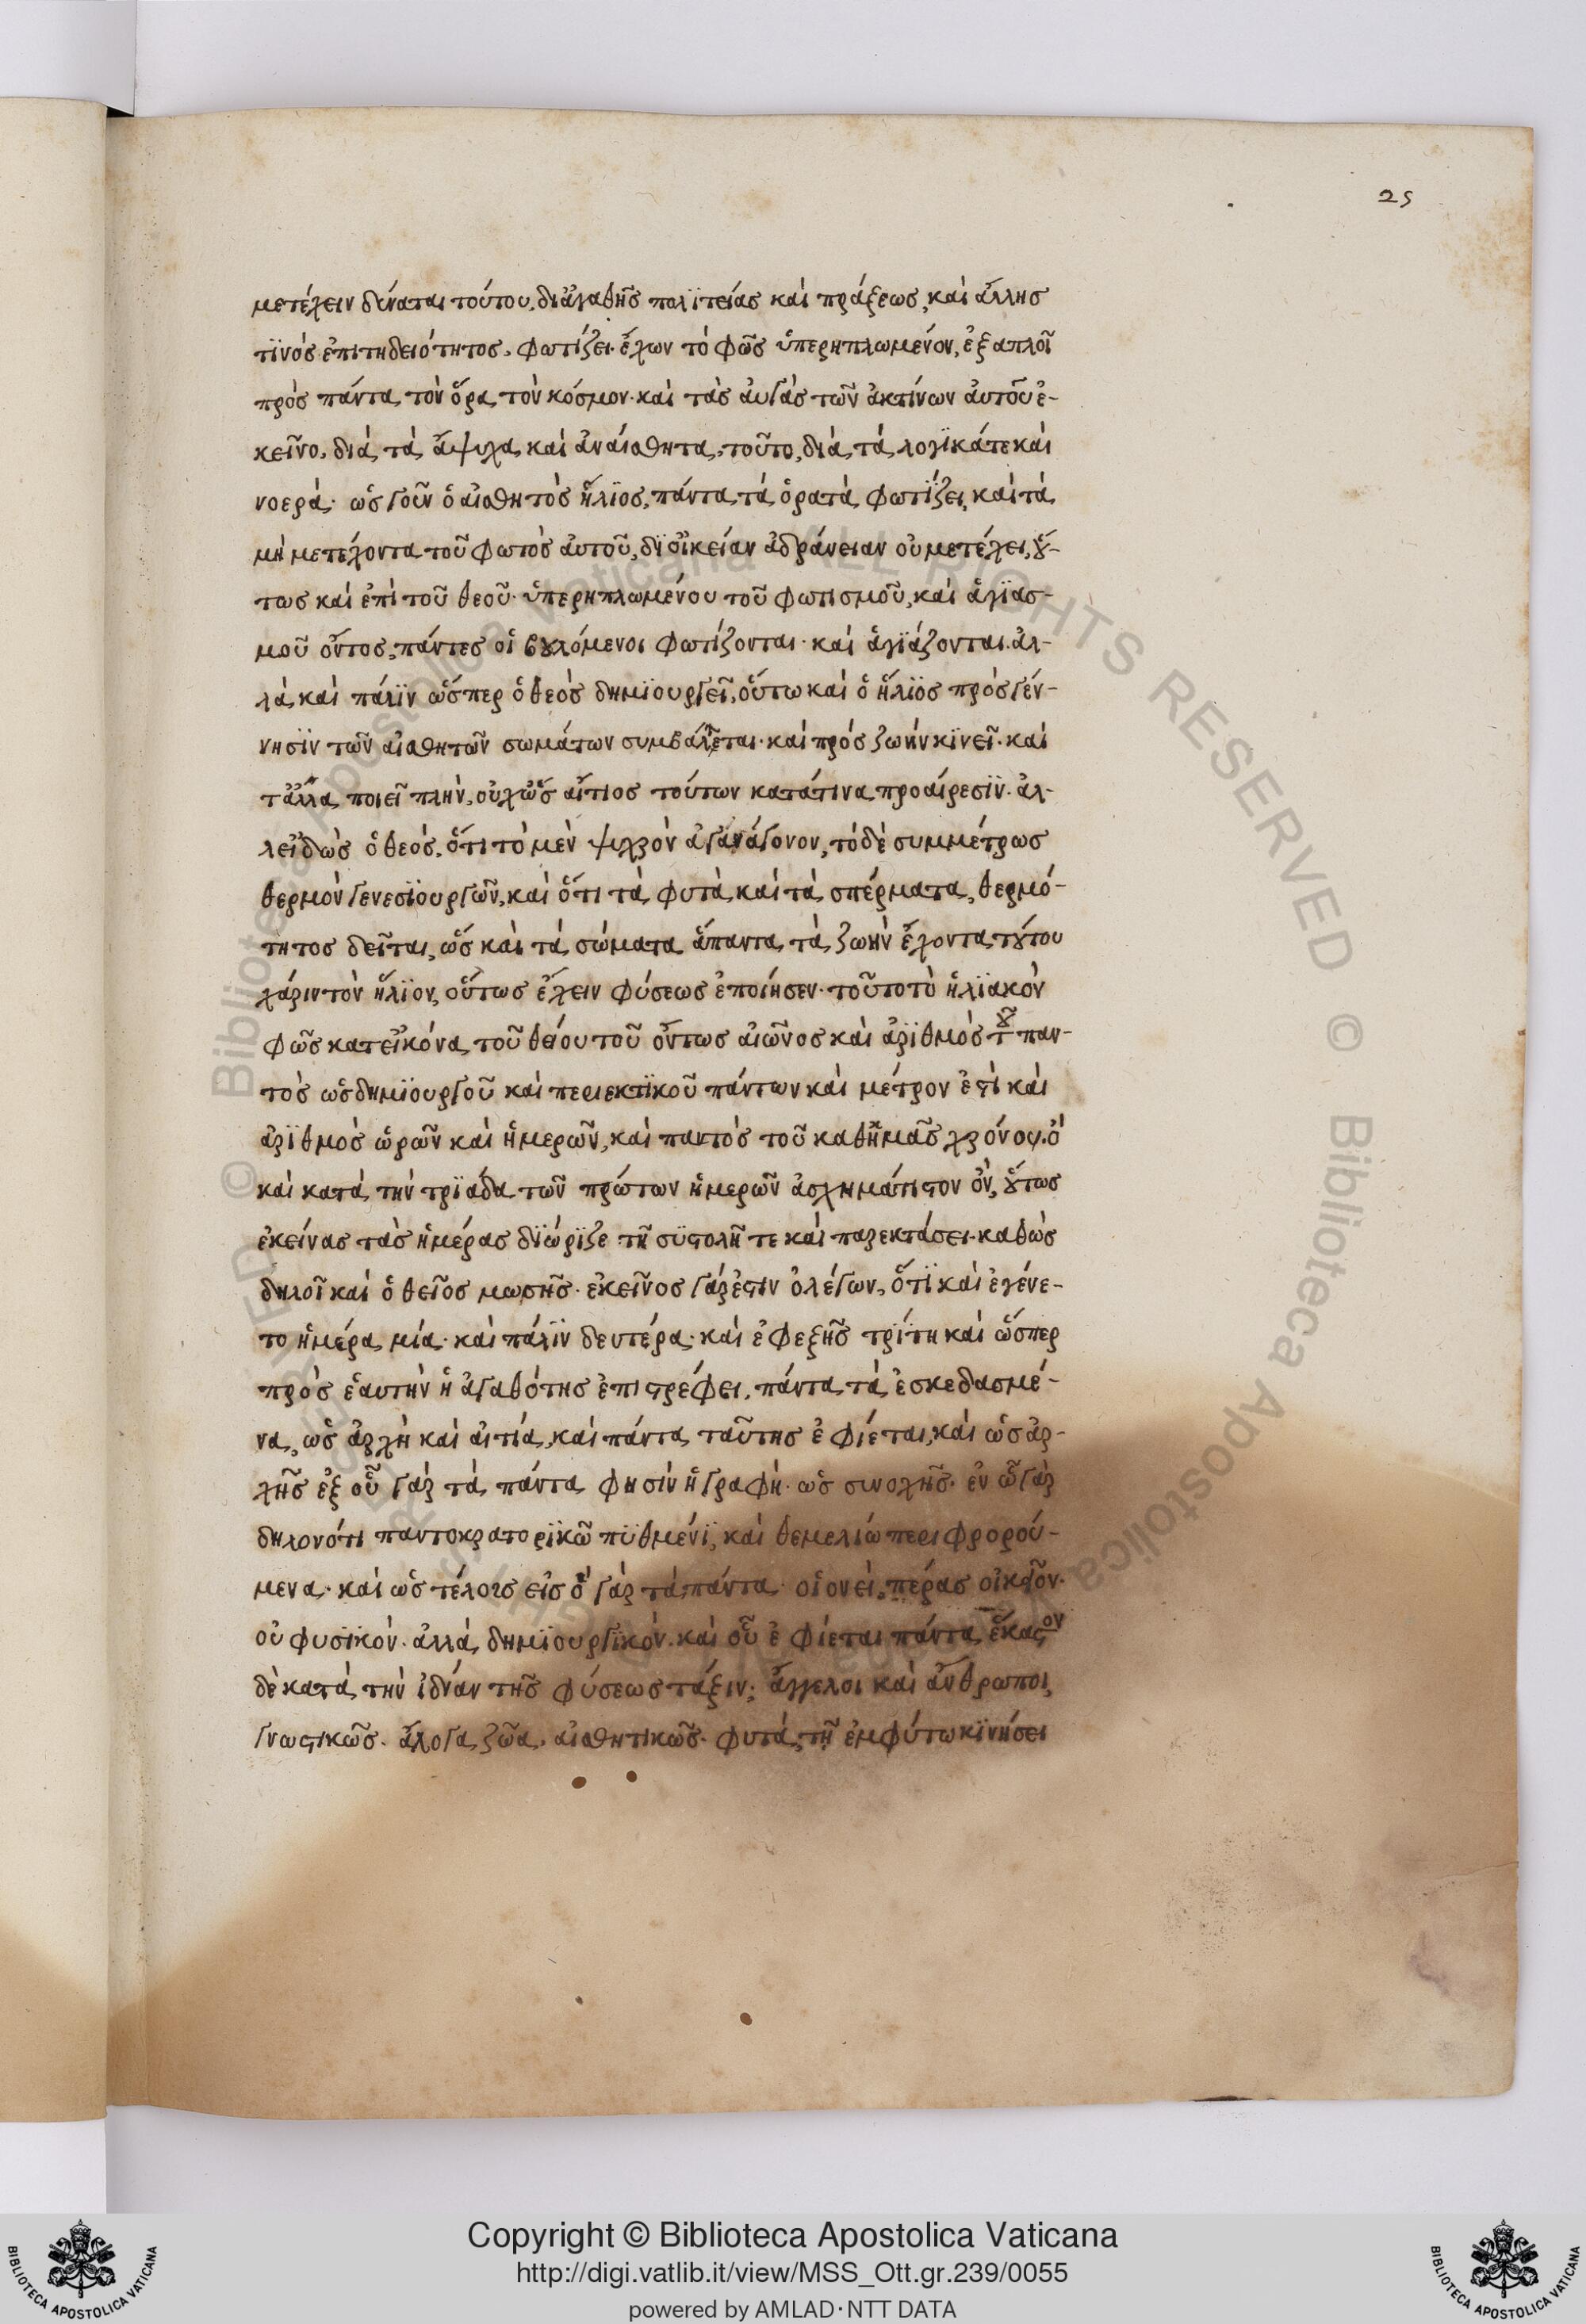 25
μετέχειν δύναται τούτου, δι ἀγαθῆς πολϊτείας καὶ πράξεως, καὶ ἄλλης
τϊνὸς ἐπιτηδειότητος. φωτίζει. ἔχων τὸ φῶς ὑπερηπλωμένον, ἐξαπλοῖ
πρὸς πάντα τὸν ὅρα τὸν κόσμον. καὶ τὰς ἀυγὰς τῶν ἀκτίνων ἀυτοῦ ἐ-
κεῖνο, διὰ τὰ ἄψυχα καὶ ἀναίσθητα. τοῦτο, διὰ τὰ λογϊκά τε καὶ
νοερά. ὡς γοῦν ὁ αἰσθητὸς ἥλϊος, πάντα τὰ ὁρατὰ φωτίζει, καὶ τὰ
μὴ μετέχοντα τοῦ φωτὸς ἀυτοῦ, δϊ οἰκείαν ἀδράνειαν οὐ μετέχει, ὅυ-
τως καὶ ἐπὶ τοῦ θεοῦ. ὑπερηπλωμένου τοῦ φωτισμοῦ, καὶ ἁγϊασ-
μοῦ ὄντος, πάντες οἱ βουλόμενοι φωτίζονται. καὶ ἁγϊάζονται. ἀλ-
λὰ καὶ πάλϊν ὥσπερ ὁ θεὸς δημϊουργεῖ, οὕτω καὶ ὁ ἥλϊος πρὸς γέν-
νησϊν τῶν αἰσθητῶν σωμάτων συμβάλλεται. καὶ πρὸς ζωὴν κϊνεῖ. καὶ
τἄλλα ποιεῖ πλὴν, οὐχ ὡς αἴτιος τούτων κατά τινα προαίρεσϊν. ἀλ-
λ εἰδὼς ὁ θεός, ὅτι τὸ μὲν ψυχρὸν ἀγανάγονον, τὸ δὲ συμμέτρως
θερμὸν γενεσϊουργῶν, καὶ ὅτι τὰ φυτὰ καὶ τὰ σπέρματα, θερμό-
τητος δεῖται, ὡς καὶ τὰ σώματα ἅπαντα τὰ ζωὴν ἔχοντα, τούτου
χάριν τὸν ἥλϊον, οὕτως ἔχειν φύσεως ἐποίησεν. τοῦτο τὸ ἡλϊακὸν
φῶς κατ εἰκόνα τοῦ θείου τοῦ ὄντως αἰῶνος καὶ ἀρϊθμὸς τοῦ παν-
τὸς ὡς δημϊουργοῦ καὶ περιεκτϊκοῦ πάντων καὶ μέτρον ἐστὶ καὶ
ἀρϊθμὸς ὡρῶν καὶ ἡμερῶν, καὶ παντὸς τοῦ καθ ἡμᾶς χρόνου. ὃ
καὶ κατὰ τὴν τρϊάδα τῶν πρώτων ἡμερῶν ἀσχημάτιστον ὂν, οὕτως
ἐκείνας τὰς ἡμέρας δϊώρϊζε τῆ συστολῆ τε καὶ παρεκτάσει. καθὼς
δηλοῖ καὶ ὁ θεῖος μωσῆς. ἐκεῖνος γάρ ἐστιν ὁ λέγων, ὅτϊ καὶ ἐγένε-
το ἡμέρα μία. καὶ πάλϊν δευτέρα. καὶ ἐφεξῆς τρϊτη καὶ ὥσπερ
πρὸς ἑαυτὴν ἡ ἀγαθότης ἐπιστρέφει, πάντα τὰ ἐσκεδασμέ-
να, ὡς ἀρχὴ καὶ αἰτία, καὶ πάντα ταύτης ἐφίεται, καὶ ὡς ἀρ-
χῆς ἐξ οὗ γὰρ τὰ πάντα φησὶν ἡ γραφή. ὡς συνοχῆς. ἐν ὧ γὰρ
δηλονότι παντοκρατορϊκῶ πϋθμένϊ, καὶ θεμελίω περιφρορού-
μενα. καὶ ὡς τέλους εἰς ὃ γὰρ τὰ πάντα. οἱονεὶ πέρας οἰκεῖον.
οὐ φυσϊκὸν. ἀλλὰ δημϊουργϊκὸν. καὶ οὗ ἐφίεται πάντα ἕκαστον
δὲ κατὰ τὴν ἰδίαν τῆς φύσεως τάξιν; ἄγγελοι καὶ ἄνθρωποι,
γνωστικῶς. ἄλογα ζῶα, αἰσθητικῶς. φυτὰ, τῆ ἐμφύτω κϊνήσει
Copyright © Biblioteca Apostolica Vaticana
http://digi.vatlib.it/view/MSS_Ott.gr.239/0055
powered by AMLAD·NTT DATA